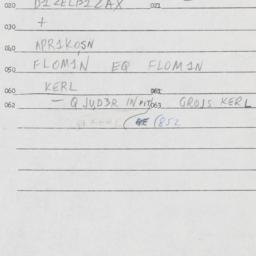 020 DIZELBIZAX 021
030 +
040 APRIKOSN
050 FLOMIN EQ FLOMIN
060 KERL 061
062 - Q JUD3R IN 063 GROIS KERL
(852